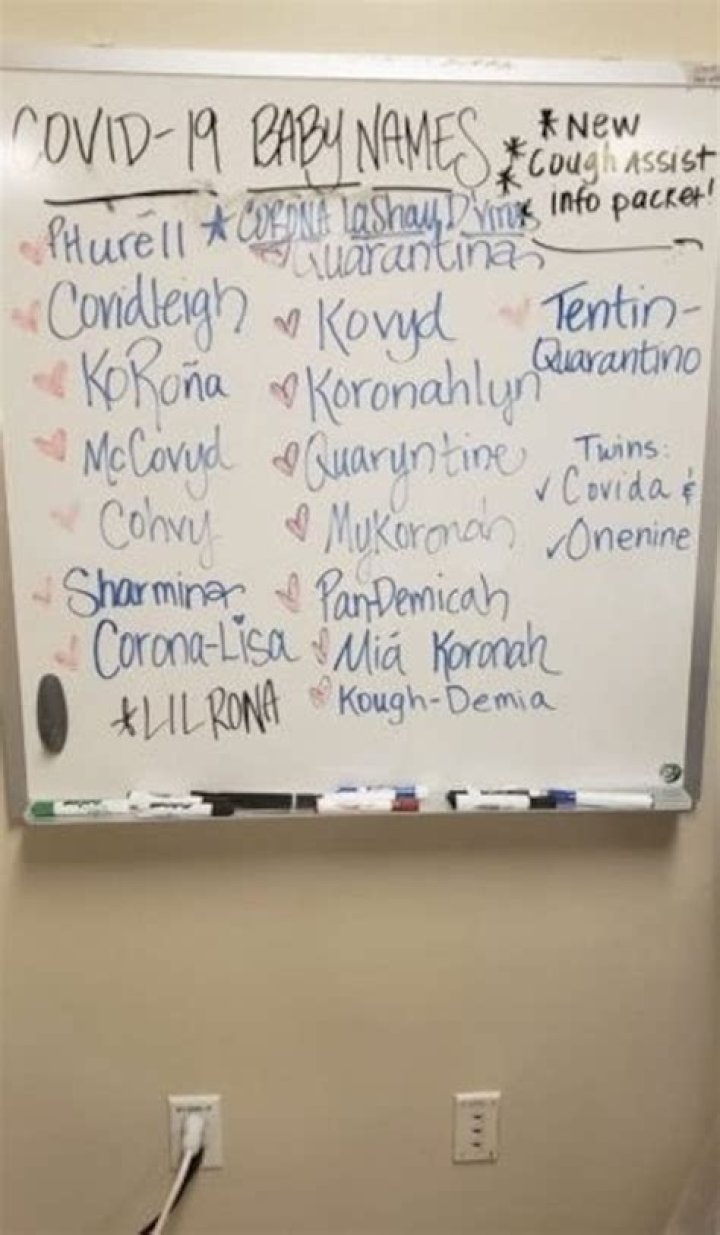 COVID-19 BABY NAMES
* New
* Cough Assist
* info packet!
PHuréll
★ CORONA LaShay D'Virus
Quarantina
Covidleigh
Kovyd
Tentin-
Quarantino
KoRoña
Koronahlyn
McCovyd
Quaryntine
Twins:
✓ Covida &
✓ Onenine
Cohvy
MyKoronah
Sharmina
Pan-Demicah
Corona-Lisa
Miá Koronah
*LIL RONA
Kough-Demia